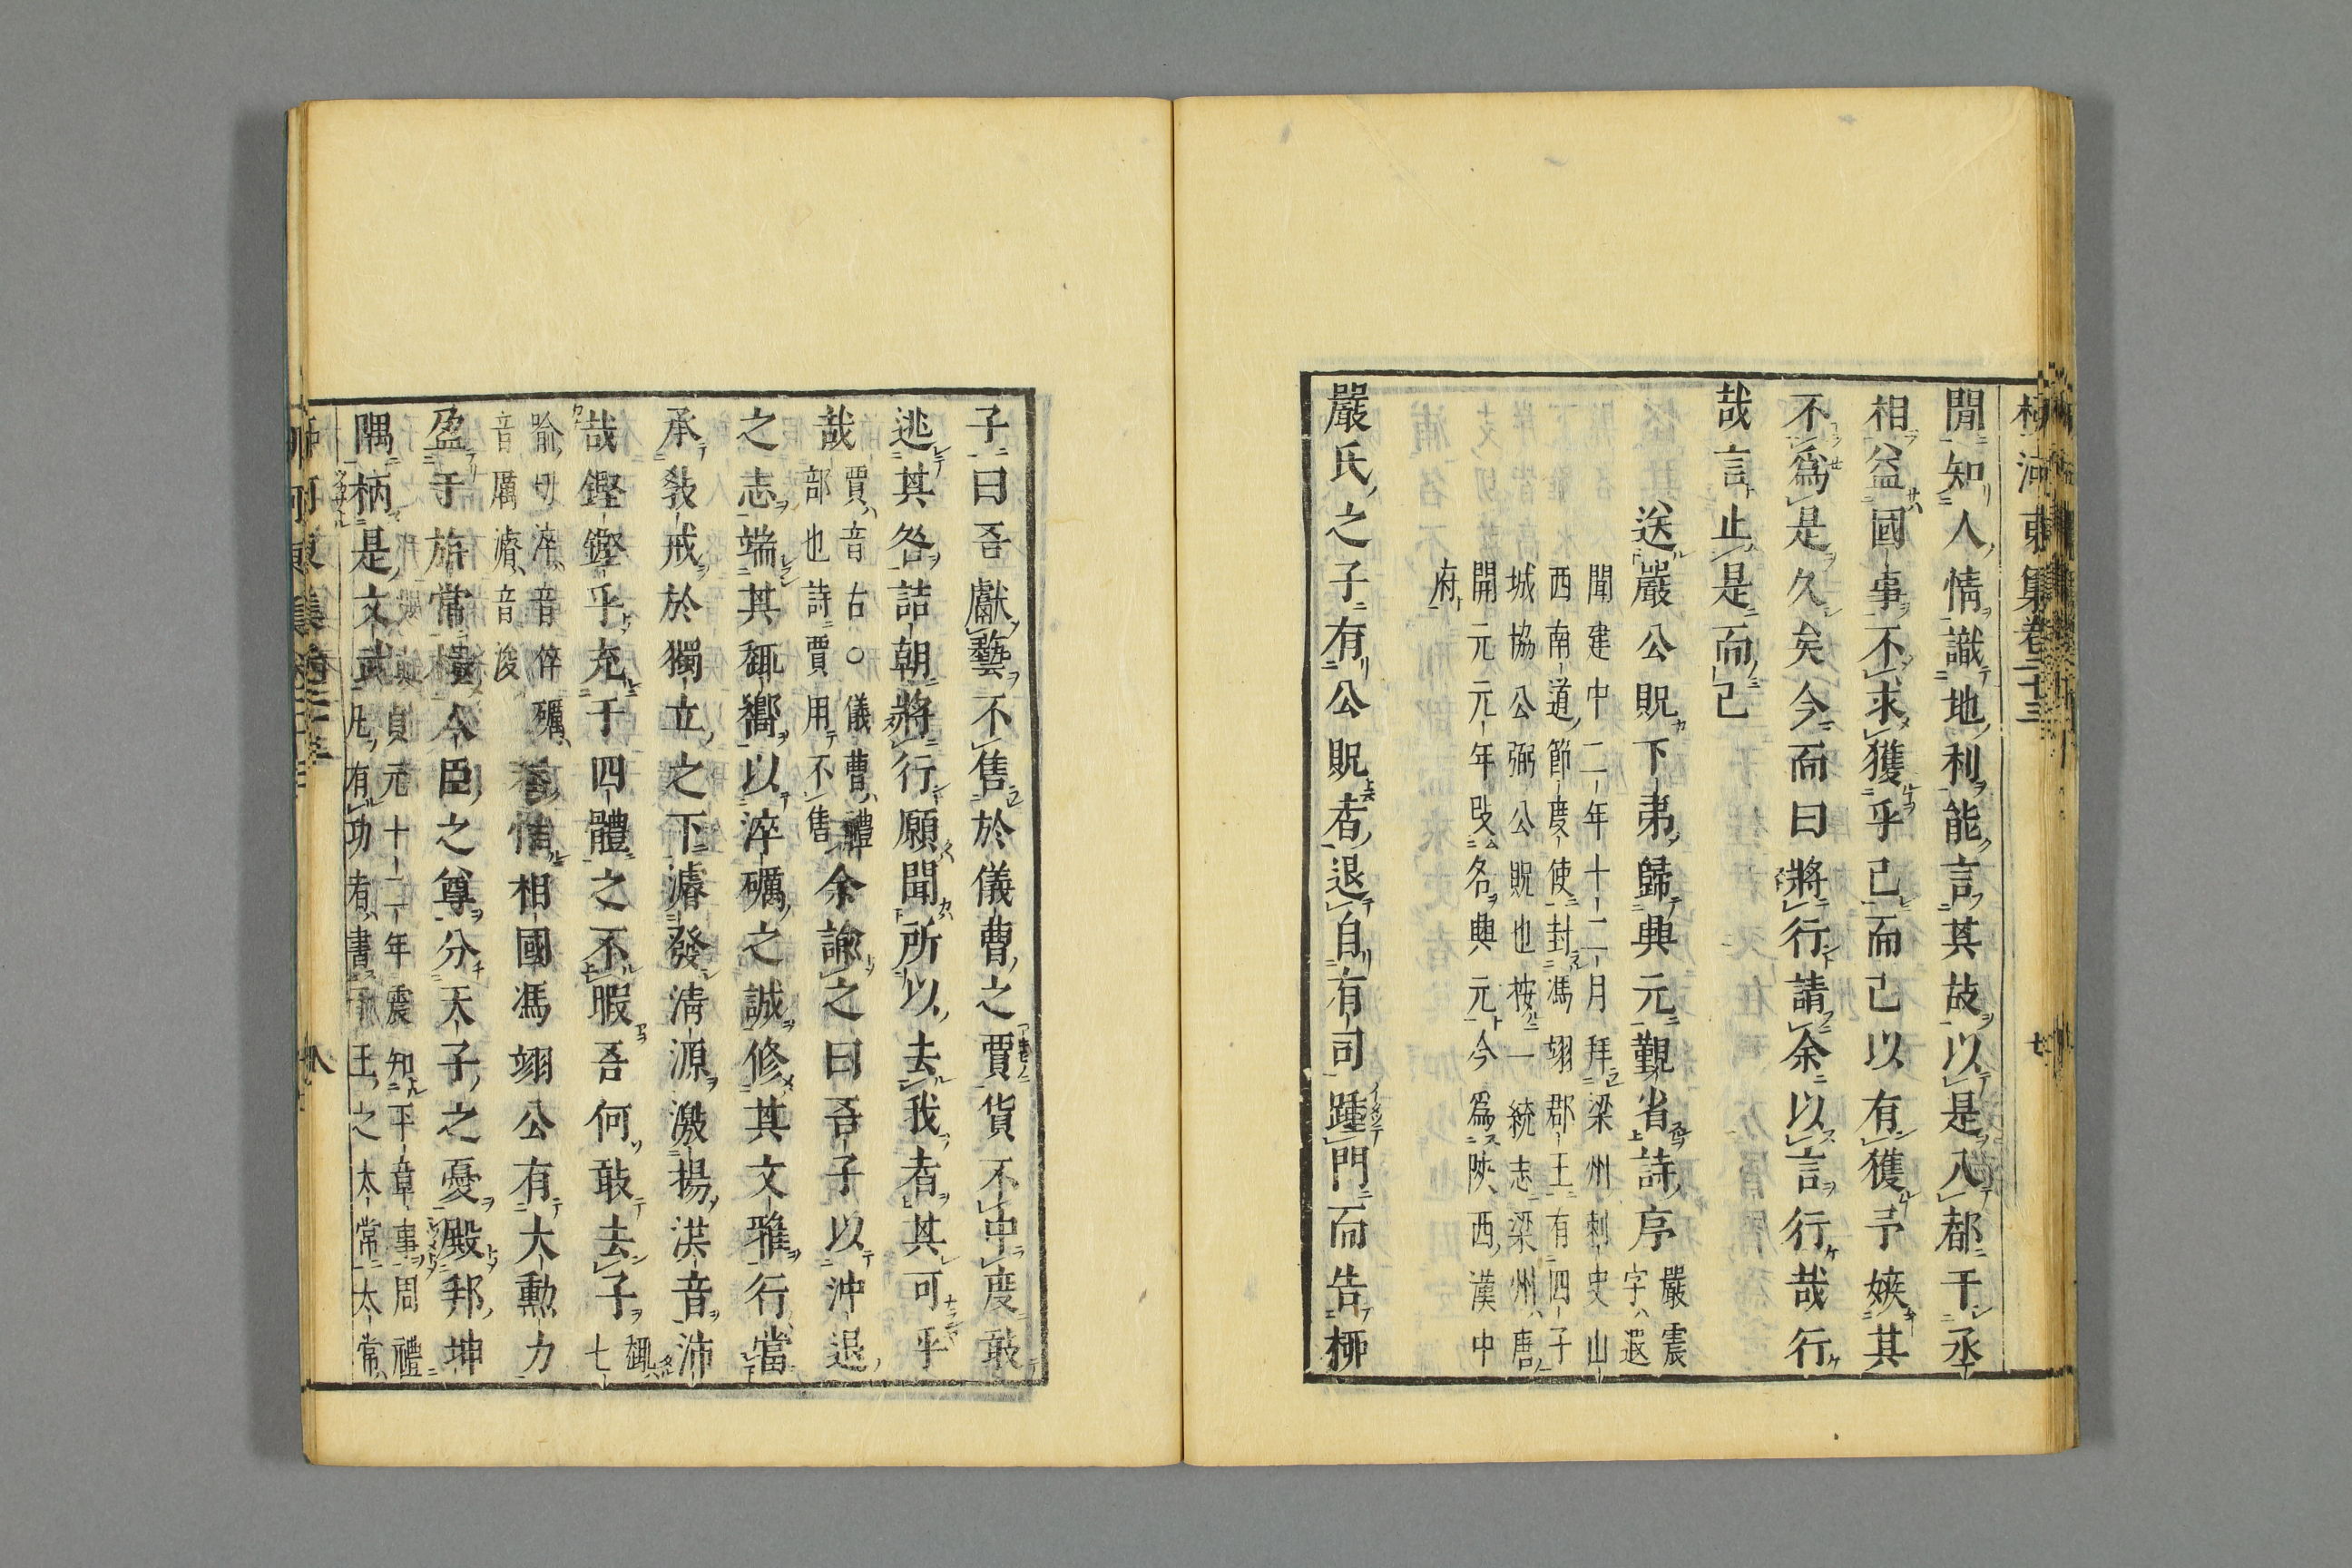 柳河東集卷二十三 七
閒知人情識地利能言其故以是入都干丞
相益國事不求獲乎己而己以有獲予嫉其
不爲是久矣今而曰將行請余以言行哉行
哉言止是而已
送嚴公貺下第歸興元覲省詩序
嚴震
字遐
聞建中二年十二月拜梁州刺史山
西南道節度使封馮翊郡王有四子
城協公弼公貺也按一統志梁州唐
開元元年改名興元今爲陝西漢中
府
嚴氏之子有公貺者退自有司踵門而告柳
子曰吾獻藝不售於儀曹之賈貨不中度敢
逃其咎詰朝將行願聞所以去我者其可乎
哉
賈音古○儀曹禮
部也詩賈用不售
余諭之曰吾子以沖退
之志端其趣嚮以淬礪之誠修其文雅行當
承教戒於獨立之下濬發清源激揚洪音沛
哉鏗鏗乎充于四體之不暇吾何敢去子
趣
七
喻切淬音倅礪
音厲濬音浚
相國馮翊公有大勳力
盈于旂常 人臣之尊分天子之憂殿邦坤
隅柄是文武
貞元十二年震知平章事周禮
凡有功者書 王之太常太常
柳河東集卷二十三 八